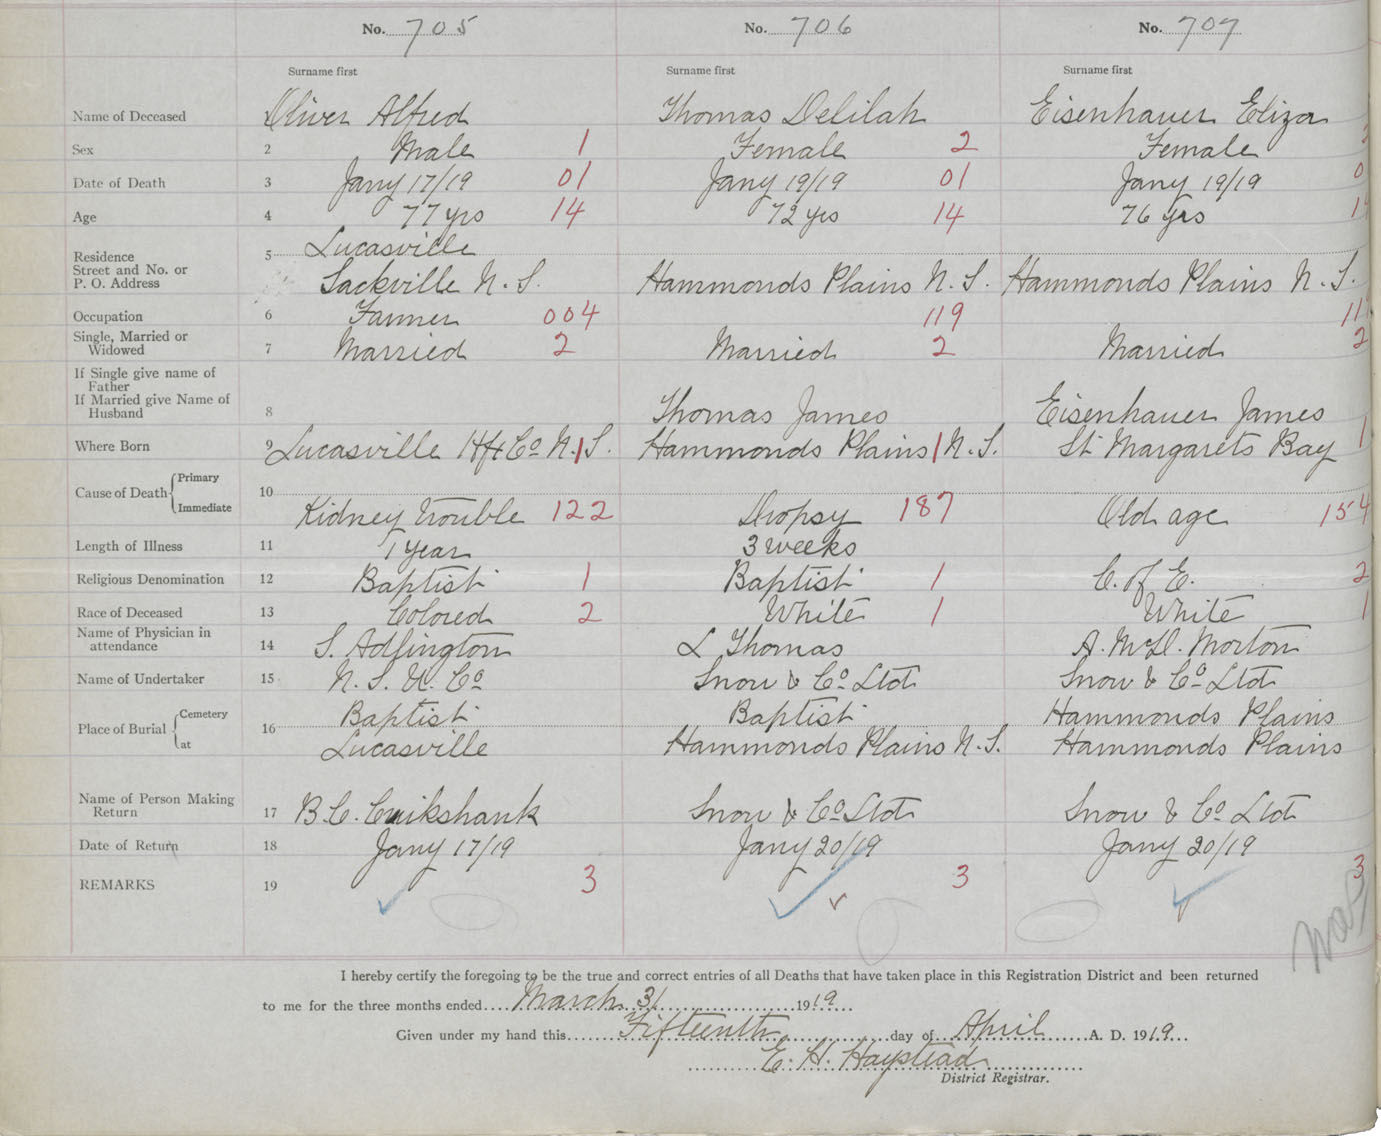 No. 705 No. 706 No. 707
Surname first Surname first Surname first
Name of Deceased Oliver Alfred Thomas Delilah Eisenhauer Eliza
Sex 2 Male 1 Female 2 Female
Date of Death 3 Jany 17/19 01 Jany 19/19 01 Jany 19/19 0
Age 4 77 yrs 14 72 yrs 14 76 yrs 1
Residence 5 Lucasville
Street and No. or
P. O. Address Sackville N. S. Hammonds Plains N. S. Hammonds Plains N. S.
Occupation 6 Farmer 004 119 11
Single, Married or
Widowed 7 Married 2 Married 2 Married 2
If Single give name of
Father
If Married give Name of
Husband 8 Thomas James Eisenhauer James
Where Born 9 Lucasville Hfx Co N. S. 1 Hammonds Plains 1 N. S. St Margarets Bay 1
Cause of Death Primary 10
Immediate Kidney trouble 122 Dropsy 187 Old age 154
Length of Illness 11 1 year 3 weeks
Religious Denomination 12 Baptist 1 Baptist 1 C. of E. 2
Race of Deceased 13 Colored 2 White 1 White 1
Name of Physician in
attendance 14 S. Adlington L Thomas A. McD. Morton
Name of Undertaker 15 N. S. U. Co Snow & Co Ltd Snow & Co Ltd
Place of Burial Cemetery 16 Baptist Baptist Hammonds Plains
at Lucasville Hammonds Plains N. S. Hammonds Plains
Name of Person Making
Return 17 B. C. Cruikshank Snow & Co Ltd Snow & Co Ltd
Date of Return 18 Jany 17/19 Jany 20/19 Jany 20/19
REMARKS 19 3 3 3
I hereby certify the foregoing to be the true and correct entries of all Deaths that have taken place in this Registration District and been returned
to me for the three months ended March 31 1919
Given under my hand this Fifteenth day of April A. D. 1919
E. H. Haystead
District Registrar.